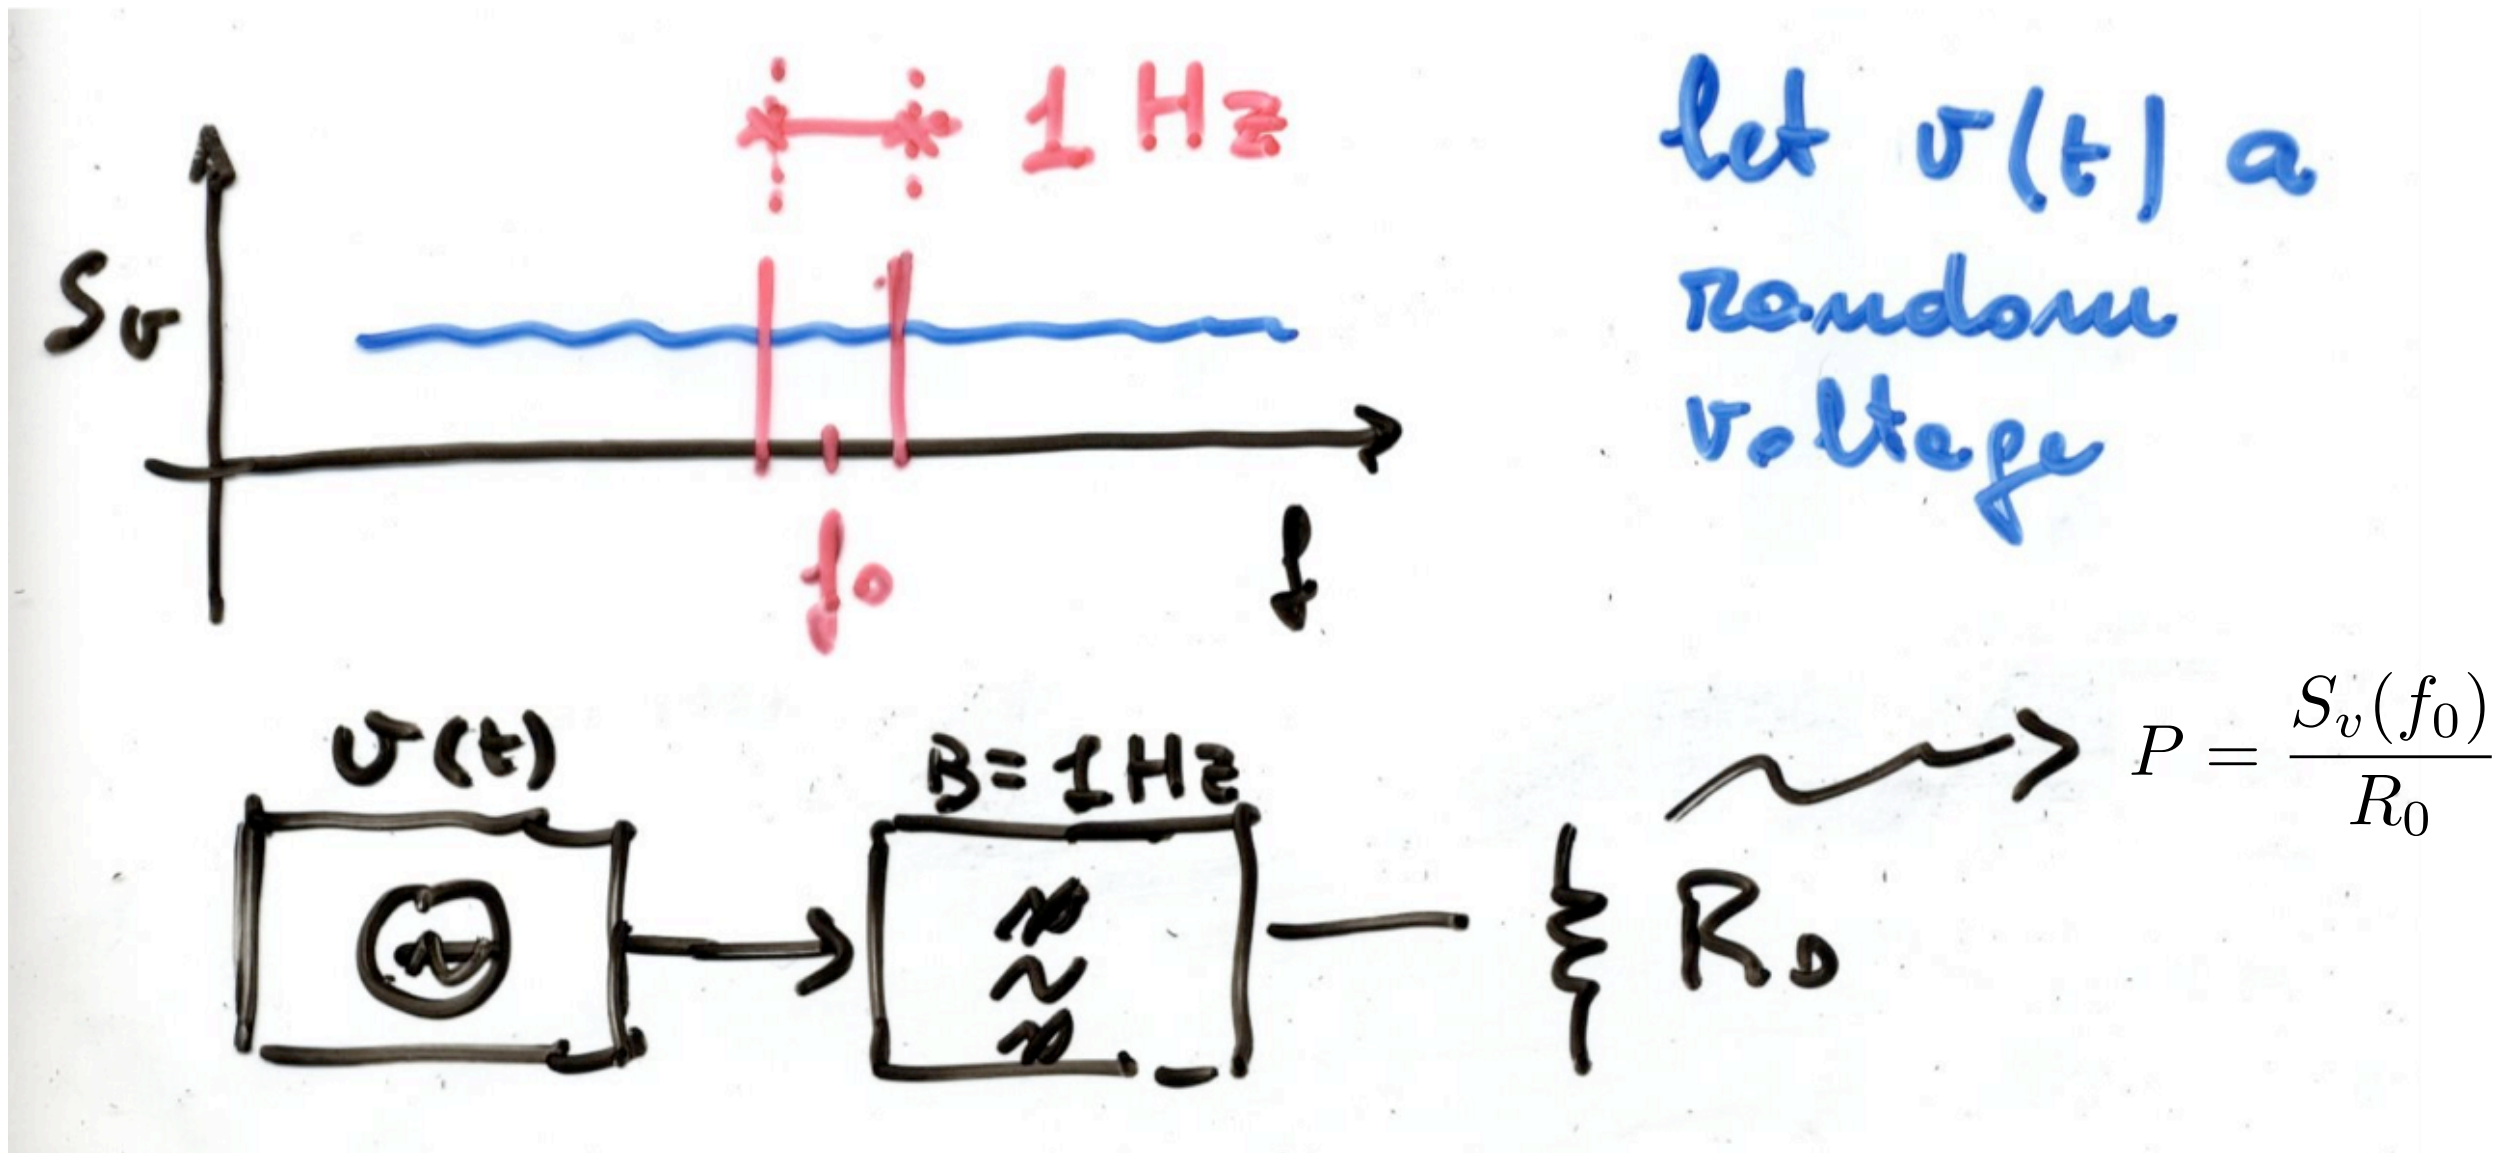 1 Hz
let v(t) a
random
voltage
S_v
f_0
f
v(t)
B = 1 Hz
P = \frac{S_v(f_0)}{R_0}
R_0